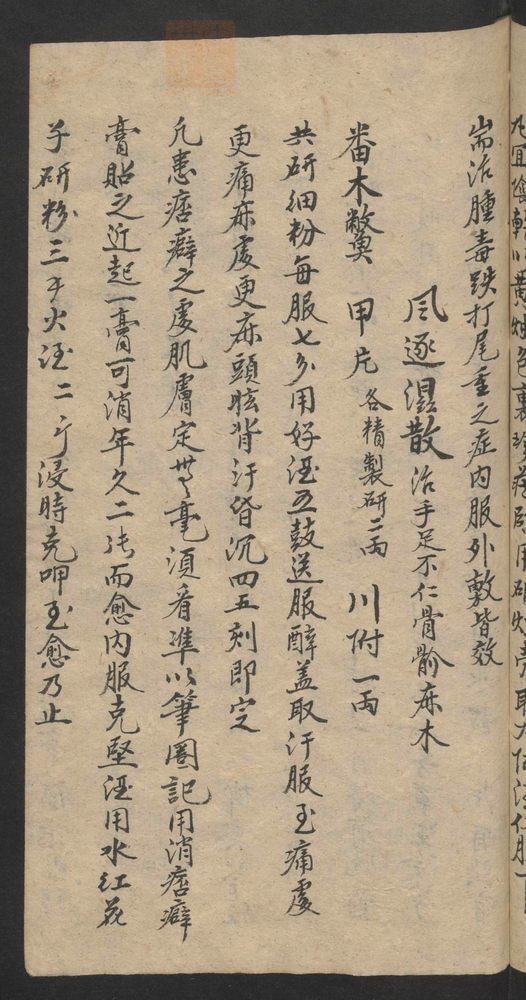 耑治腫毒跌打尾重之症内服外敷皆效
風逐濕散 治手足不仁骨骱麻木
番木鱉 甲片 各精製研二兩 川附一兩
共研細粉每服七分用好酒五鼓送服醉盖取汗服至痛處
更痛麻處更麻頭眩背汗昏沉四五刻即定
凡患痞癖之處肌膚定無毫須看準以筆圈記用消痞癖
膏貼之近起一膏可消年久二張而愈内服克堅酒用水红花
子研粉三手火酒二斤浸時克呷至愈乃止